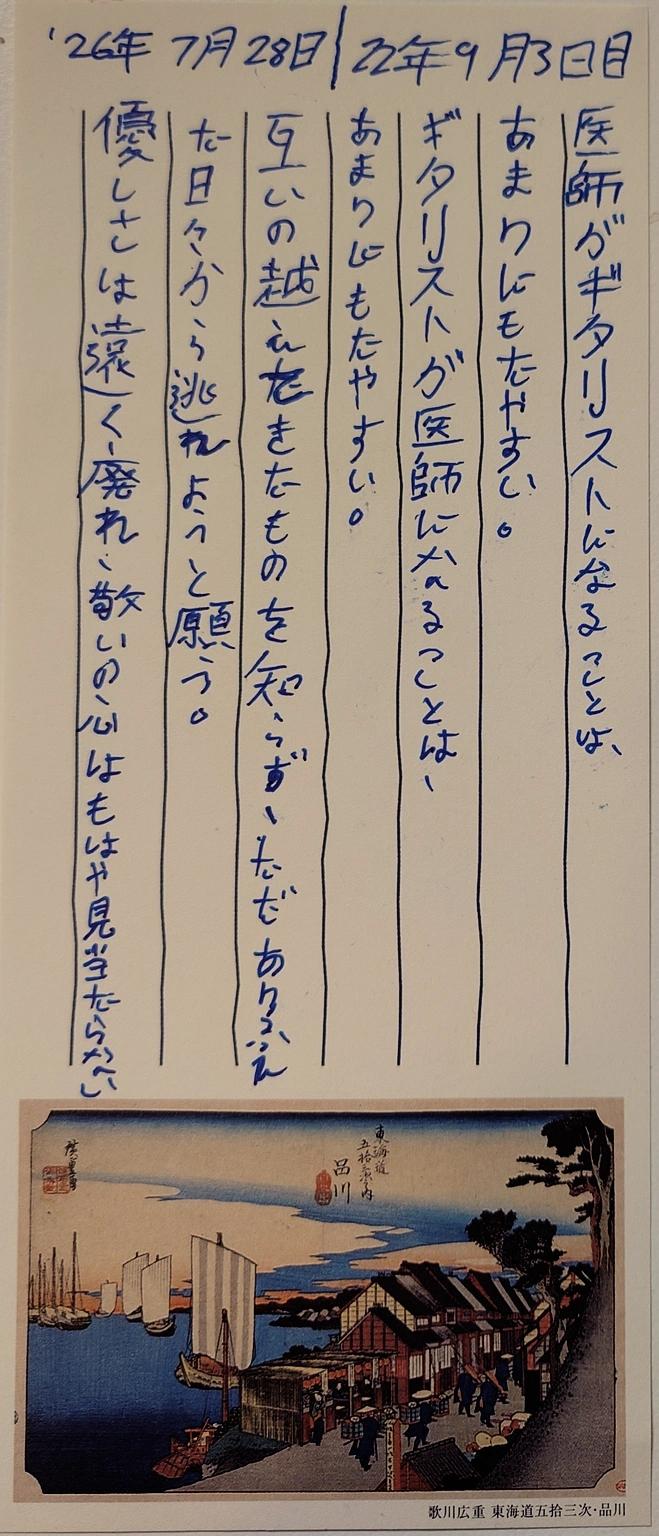 '26年 7月28日 / 22年9月3日目
医師がギタリストになることは、
あまりにもたやすい。
ギタリストが医師になることは、
あまりにもたやすい。
互いの越えたきたものを知らず、ただありふれ
た日々から逃れようと願う。
優しさは遠く廃れ、敬いの心はもはや見当たらない
東海道
五拾三次之内
品川
広重画
歌川広重 東海道五拾三次・品川